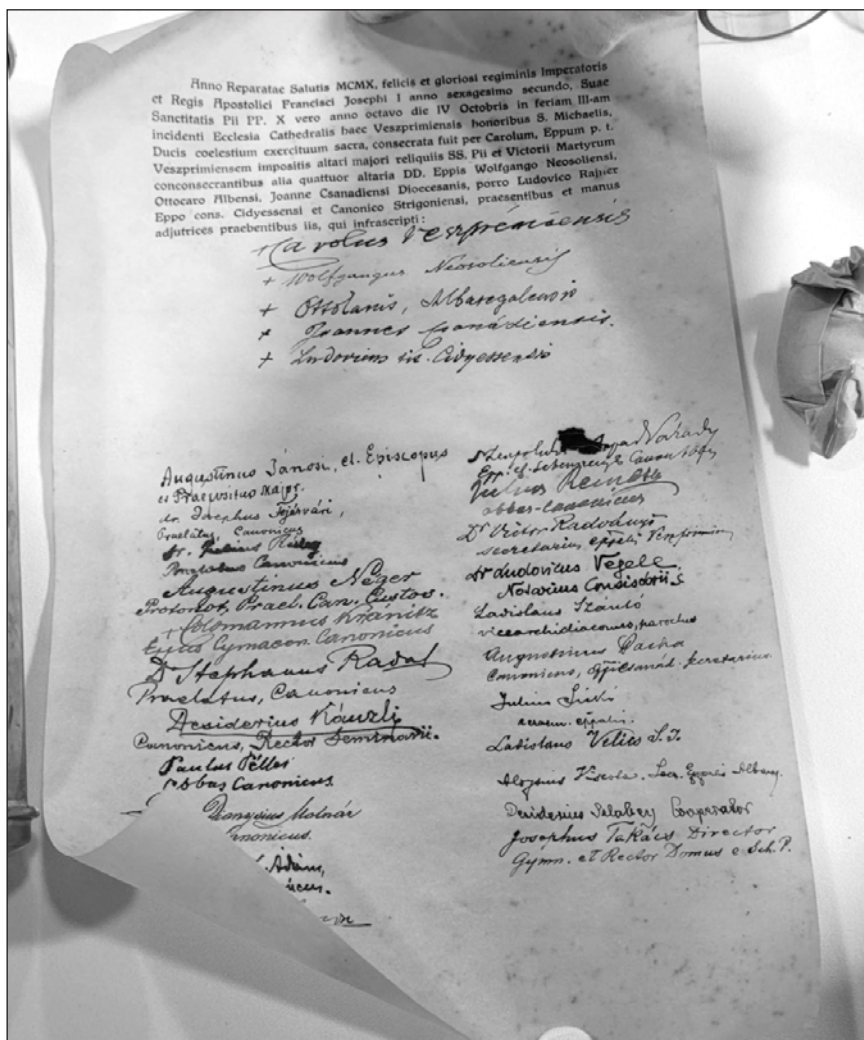 Anno Reparatae Salutis MCMX, felicis et gloriosi regiminis Imperatoris
et Regis Apostolici Francisci Josephi I anno sexagesimo secundo, Suae
Sanctitatis Pii PP. X vero anno octavo die IV Octobris in feriam III-am
incidenti Ecclesia Cathedralis haec Veszprimiensis honoribus S. Michaelis,
Ducis coelestium exercituum sacra, consecrata fuit per Carolum, Eppum p. t.
Veszprimiensem impositis altari majori reliquiis SS. Pii et Victorii Martyrum
conconsecrantibus alia quattuor altaria DD. Eppis Wolfgango Neosoliensi,
Ottocaro Albensi, Joanne Csanadiensi Dioecesanis, porro Ludovico Rajner
Eppo cons. Cidyessensi et Canonico Strigoniensi, praesentibus et manus
adjutrices praebentibus iis, qui infrascripti:
+ Carolus Veszprémiensis
+ Wolfgangus Neosoliensis
+ Ottokarus, Albaregalensis
+ Joannes Csanádiensis.
+ Ludovicus Cidyessensis
Augustinus Jánosi, el. Episcopus
et Praepositus Major.
dr. Josephus Fejérvári,
Praelatus, Canonicus
dr. Rédey
Praelatus Canonicus
Augustinus Néger
Protonot. Prael. Can. Custos.
+ Colomannus Kránitz
Eppus Cymacen. Canonicus
Dr Stephanus Radat
Praelatus, Canonicus
Desiderius Känzli
Canonicus, Rector Seminarii.
Paulus Péller
Abbas Canonicus
Dionysius Molnár
Canonicus.
Ádám,
icus.
Árpád Várady
Epp. el.
Julius Rem
abbas-canonicus
Dr Victor Radványi
secretarius eppalis Veszprimien
Dr Ludovicus Vegele
Notarius Consistorii
Ladislaus Szántó
vicearchidiaconus, parochus
Augustinus Pacha
Canonicus, secretarius
Julius
eppalis.
Ladislaus Velics S. J.
Aloysius Viscola. Secr.
Desiderius Cooperator
Josephus Takács Director
Gymn. et Rector Domus e Sch. P.